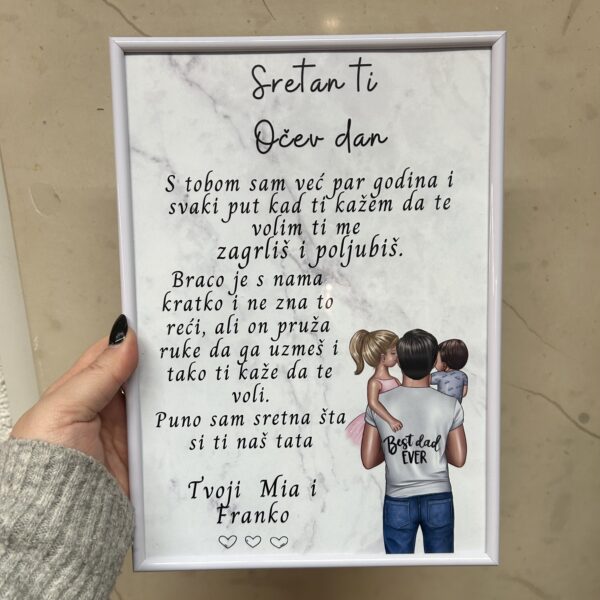 Sretan ti
Očev dan
S tobom sam već par godina i
svaki put kad ti kažem da te
volim ti me
zagrliš i poljubiš.
Braco je s nama
kratko i ne zna to
reći, ali on pruža
ruke da ga uzmeš i
tako ti kaže da te
voli.
Puno sam sretna šta
si ti naš tata
Best dad
EVER
Tvoji Mia i
Franko